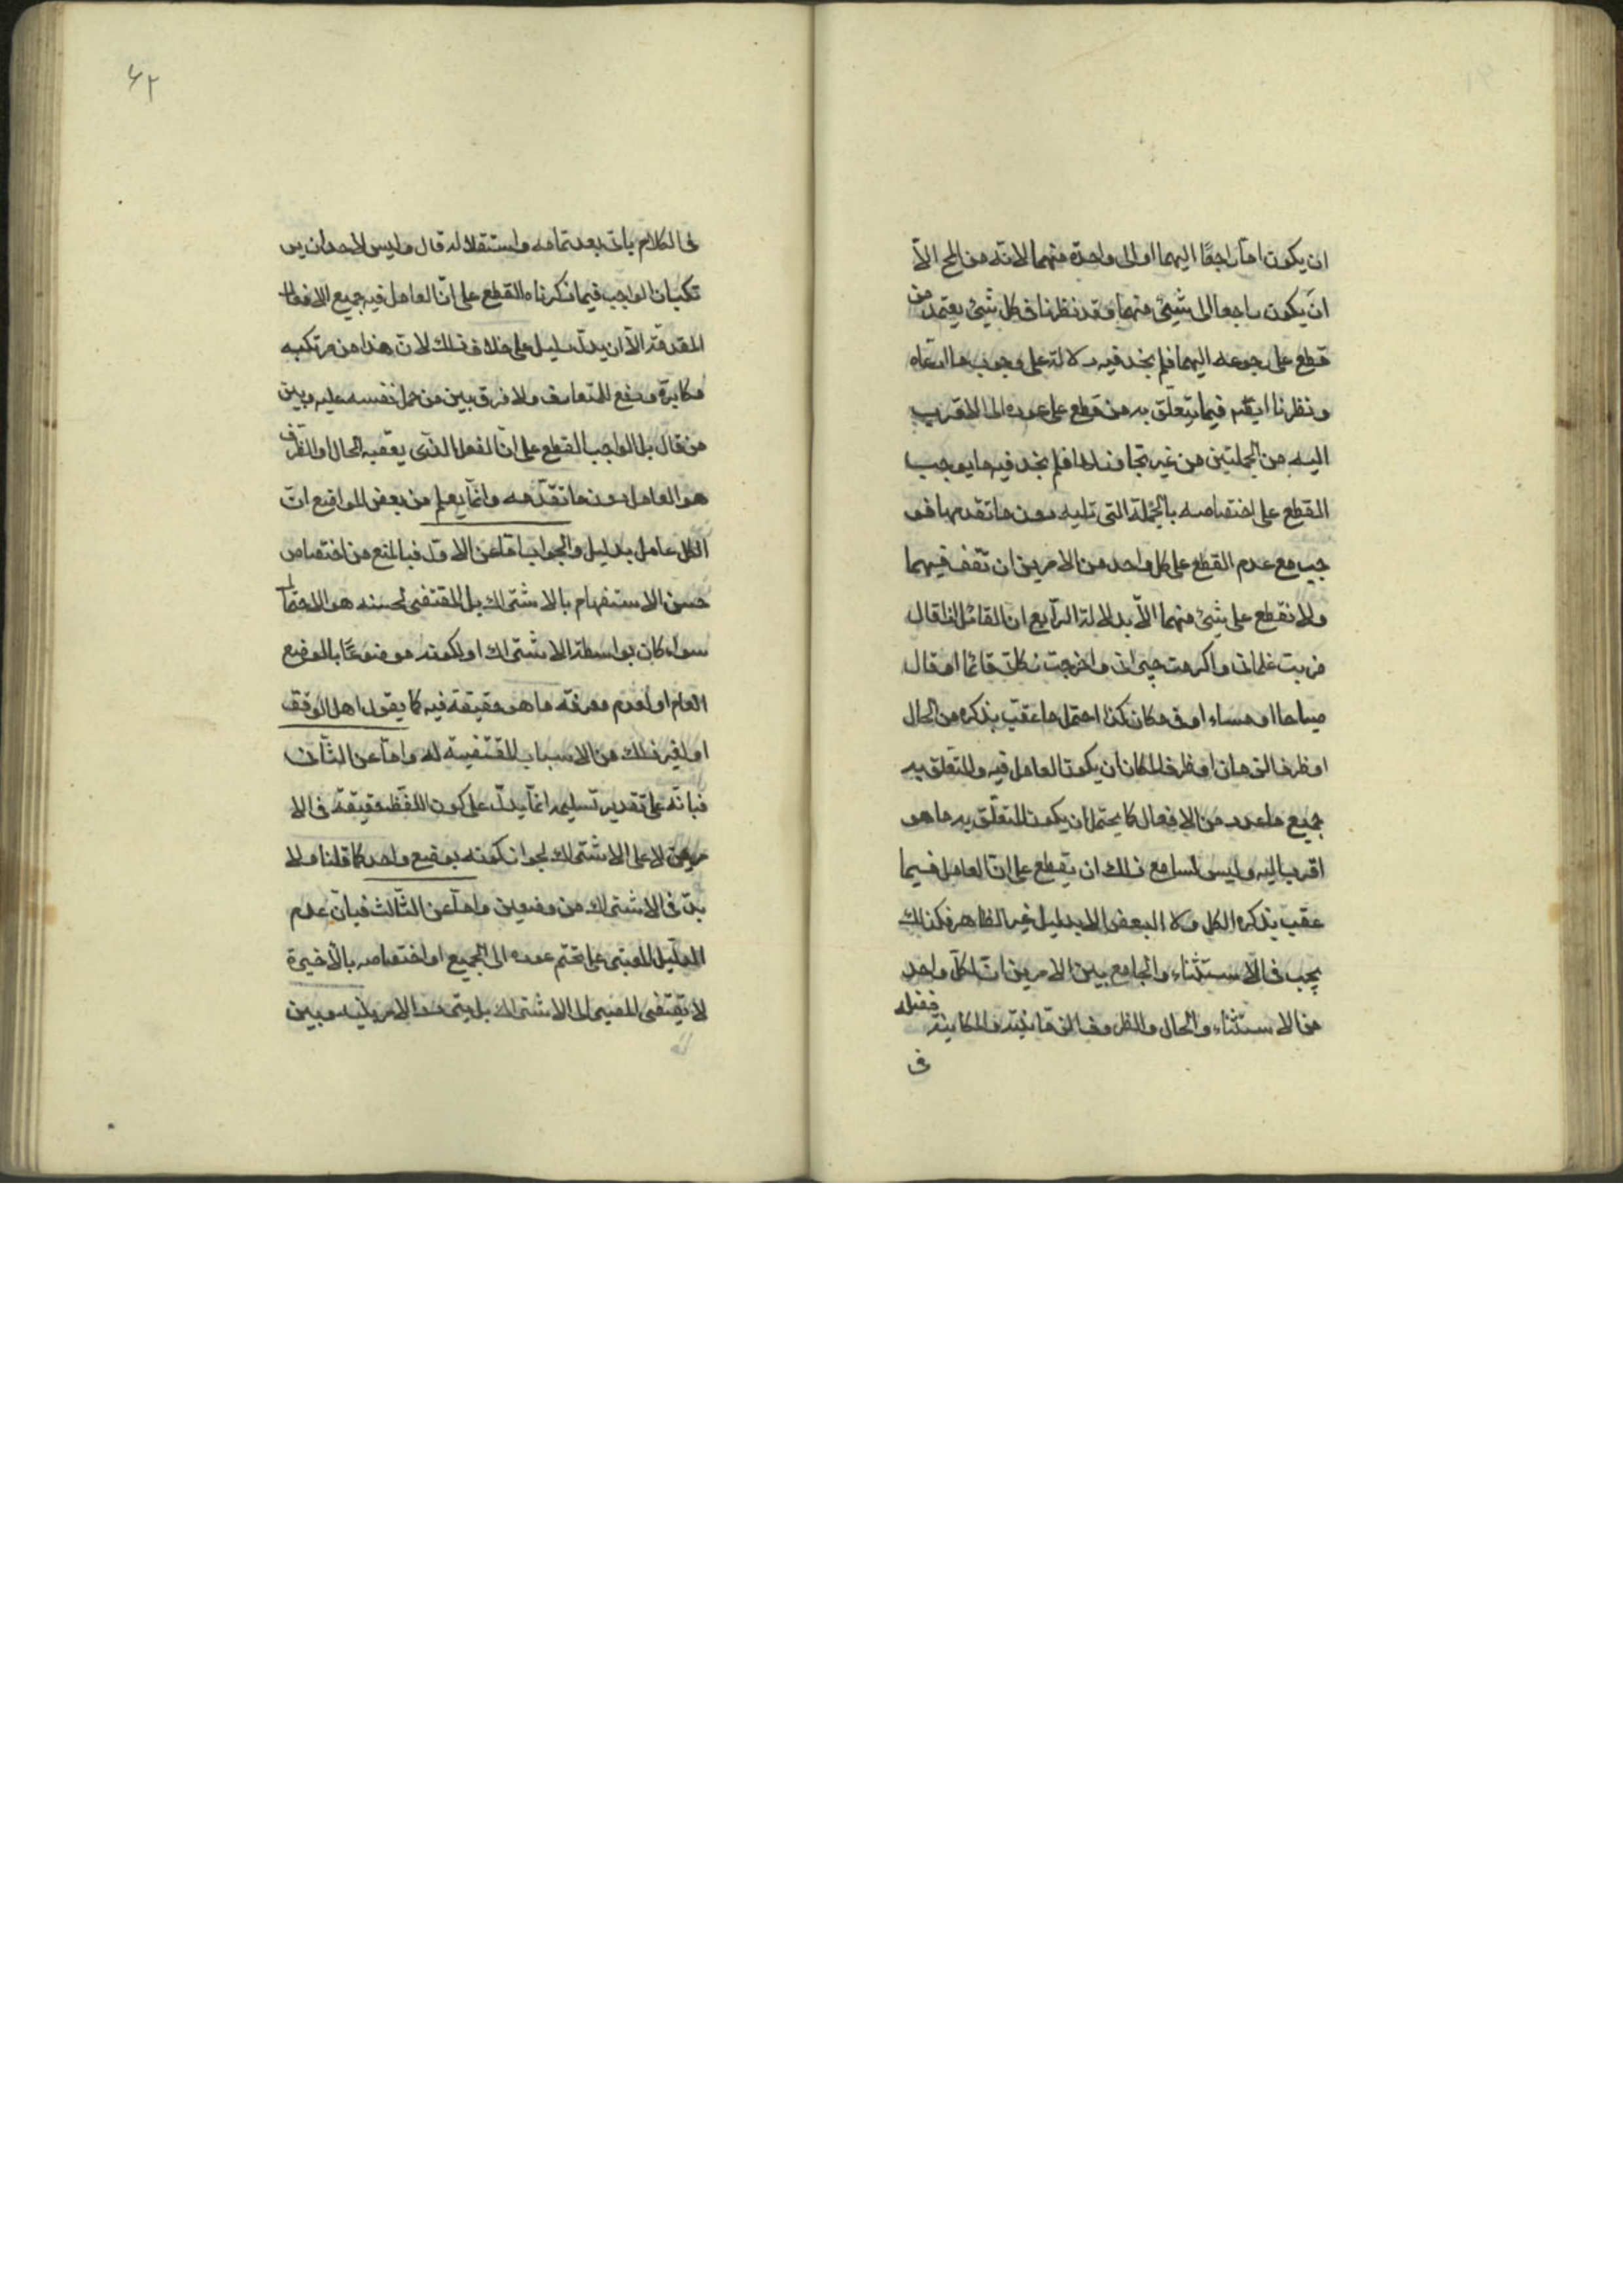 ان يكون امّا راجعًا اليهما او الى واحدة منهما لانّه من المح الّا
انّ يكون راجعا الى شيئ منهما وقد نظرنا فى كل شيئ يعتمد من
قطع على رجوعه اليهما فلم نجد فيه دلالة على وجوب ما ادّعاه
ونظرنا ايضًا فيما يتعلّق به من قطع على عوده الى الاقرب
اليه من الجملتين من غير تجاوز لها فلم نجد فيه ما يوجب
القطع على اختصاصه بالجملة التى تليه دون ما تقدمها فو
جب مع عدم القطع على كل واحد من الامرين ان نقف فيهما
ولا نقطع على شيئ منهما الّا بدلالة الرّابع ان القائل اذا قال
ضربت غلمانى واكرمت جيرانى واخرجت زكاتى قائما او قال
صباحا او مساء او فى مكان كذا احتمل ما عقب بذكره من الحال
او ظرف الزمان او ظرف المكان ان يكون العامل فيه والمتعلق به
جميع ما عدد من الافعال كما يحتمل ان يكون المتعلّق به ما هو
اقرب اليه وليس لنا مع ذلك ان نقطع على انّ العامل فيما
عقب بذكره الكل ولا البعض الا بدليل غير الظاهر فكذلك
يجب فى الاستثناء والجامع بين الامرين انّ كلّ واحد
من الاستثناء والحال والظروف الزمانيّة والمكانيّة فضلة
فى
۶۲
فى الكلام ياتى بعد تمامه واستقلاله قال وليس لاحد ان ير
تكب ان الواجب فيما ذكرناه القطع على انّ العامل فيه جميع الافعال
المتقدمة الّا ان يدلّ دليل على خلاف ذلك لانّ هذا من مرتكبه
مكابرة ودفع للمتعارف ولا فرق بين من حمل نفسه عليه وبين
من قال بل الواجب القطع على انّ الفعل الّذى يعقبه الحال او الظرف
هو العامل دون ما تقدّمه وانّما يعلم من بعض المواضع انّ
الكل عامل بدليل والجواب امّا عن الاوّل فبالمنع من اختصاص
حسن الاستفهام بالاشتراك بل المقتضى لحسنه هو الاحتمال
سواء كان بواسطة الاشتراك او لكونه موضوعًا بالوضع
العام او لعدم معرفة ما هو حقيقة فيه كما يقول اهل الوقف
او لغير ذلك من الاسباب المقتضية له وامّا عن الثّانى
فبانّه على تقدير تسليمه انّما يدلّ على كون اللّفظ حقيقة فى الا
مرين لا على الاشتراك لجواز كونه بوضع واحد كما قلنا ولا
بدّ فى الاشتراك من وضعين وامّا عن الثّالث فبانّ عدم
الدّليل المعتبر على تحتّم عوده الى الجميع او اختصاصه بالأخيرة
لا يقتضى المصير الى الاشتراك بل يتردد الامر بينه وبين